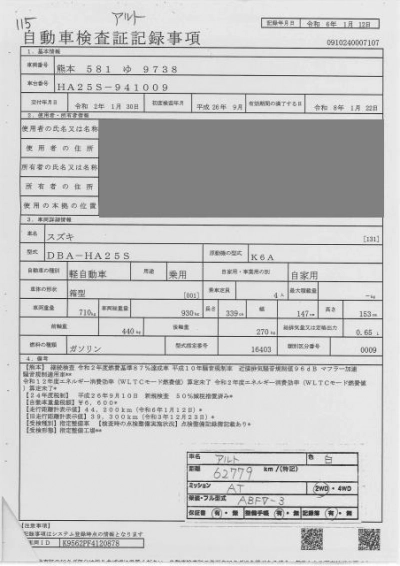 115 アルト
自動車検査証記録事項
記録年月日 令和 6年 1月12日
0910240007107
1.基本情報
車両番号 熊本 581 ゆ 9738
車台番号 HA25S-941009
交付年月日 令和 2年 1月30日 初度検査年月 平成26年 9月 有効期間の満了する日 令和 8年 1月22日
2.使用者・所有者情報
使用者の氏名又は名称
使用者の住所
所有者の氏名又は名称
所有者の住所
使用の本拠の位置
3.車両詳細情報
車名 スズキ [131]
型式 DBA-HA25S 原動機の型式 K6A
自動車の種別 軽自動車 用途 乗用 自家用・事業用の別 自家用
車体の形状 箱型 [001] 乗車定員 4人 最大積載量 -kg
車両重量 710kg 車両総重量 930kg 長さ 339cm 幅 147cm 高さ 153cm
前軸重 440kg 後軸重 270kg 総排気量又は定格出力 0.65L
燃料の種類 ガソリン 型式指定番号 16403 類別区分番号 0009
4.備考
【熊本】 継続検査 令和2年度燃費基準87%達成車 平成10年騒音規制車 近接排気騒音規制値96dB マフラー加速
騒音規制適用車**
令和12年度エネルギー消費効率(WLTCモード燃費値)算定未了 令和2年度エネルギー消費効率(WLTCモード燃費値
)算定未了*
【24年度税制】 平成26年9月10日 新規検査 50%減税措置済み*
【自動車重量税額】 ¥6,600*
【走行距離計表示値】 44,200km(令和6年1月12日)*
【旧走行距離計表示値】 39,300km(令和3年12月23日)*
【受検種別】指定整備車 【検査時の点検整備実施状況】点検整備記録簿記載あり*
【受検形態】指定整備工場**
車名 アルト 色 白
距離 62779 km/(特記)
ミッション AT 2WD・4WD
車歴・フル型式 ABFD-3
保証書 有・無 整備手帳 有・無 記録簿 有・無
【注意事項】
記録事項はシステム登録時点の情報となります
車両ID K9562PF4120878